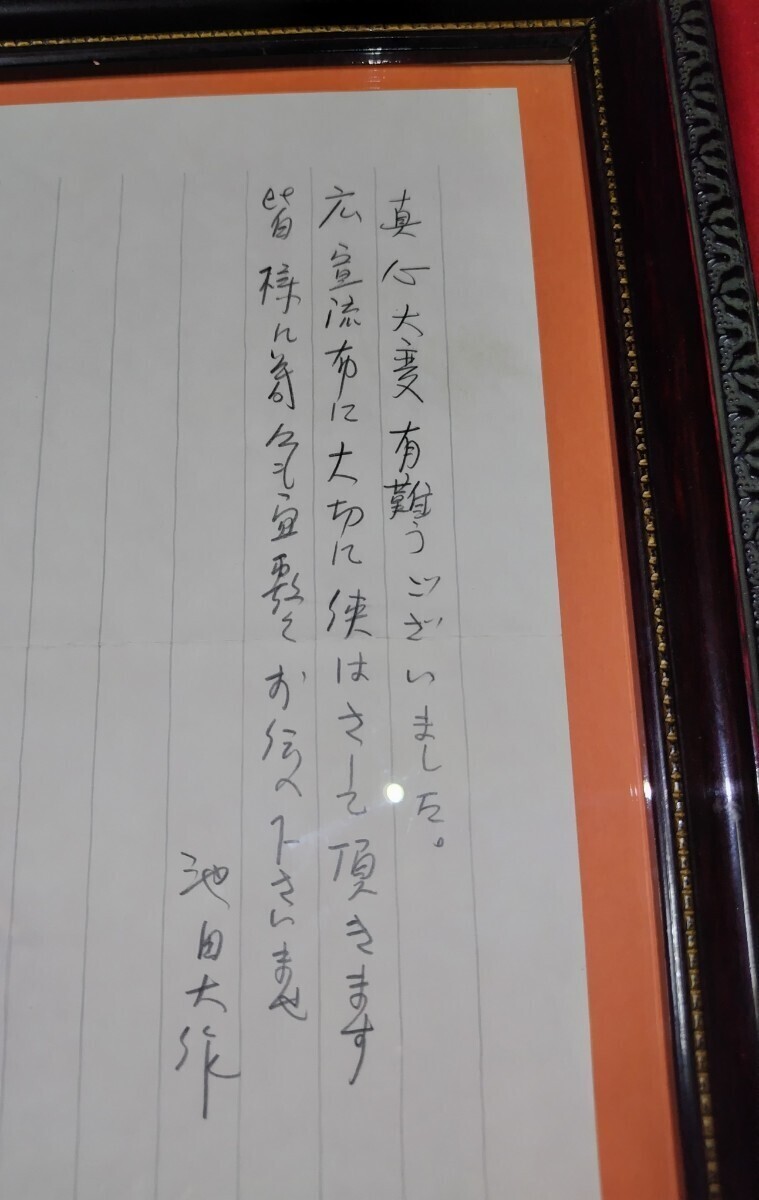 真心大変有難うございました。
広宣流布に大切に使はさして頂きます
皆様に何も宜敷くお伝へ下さいませ
池田大作